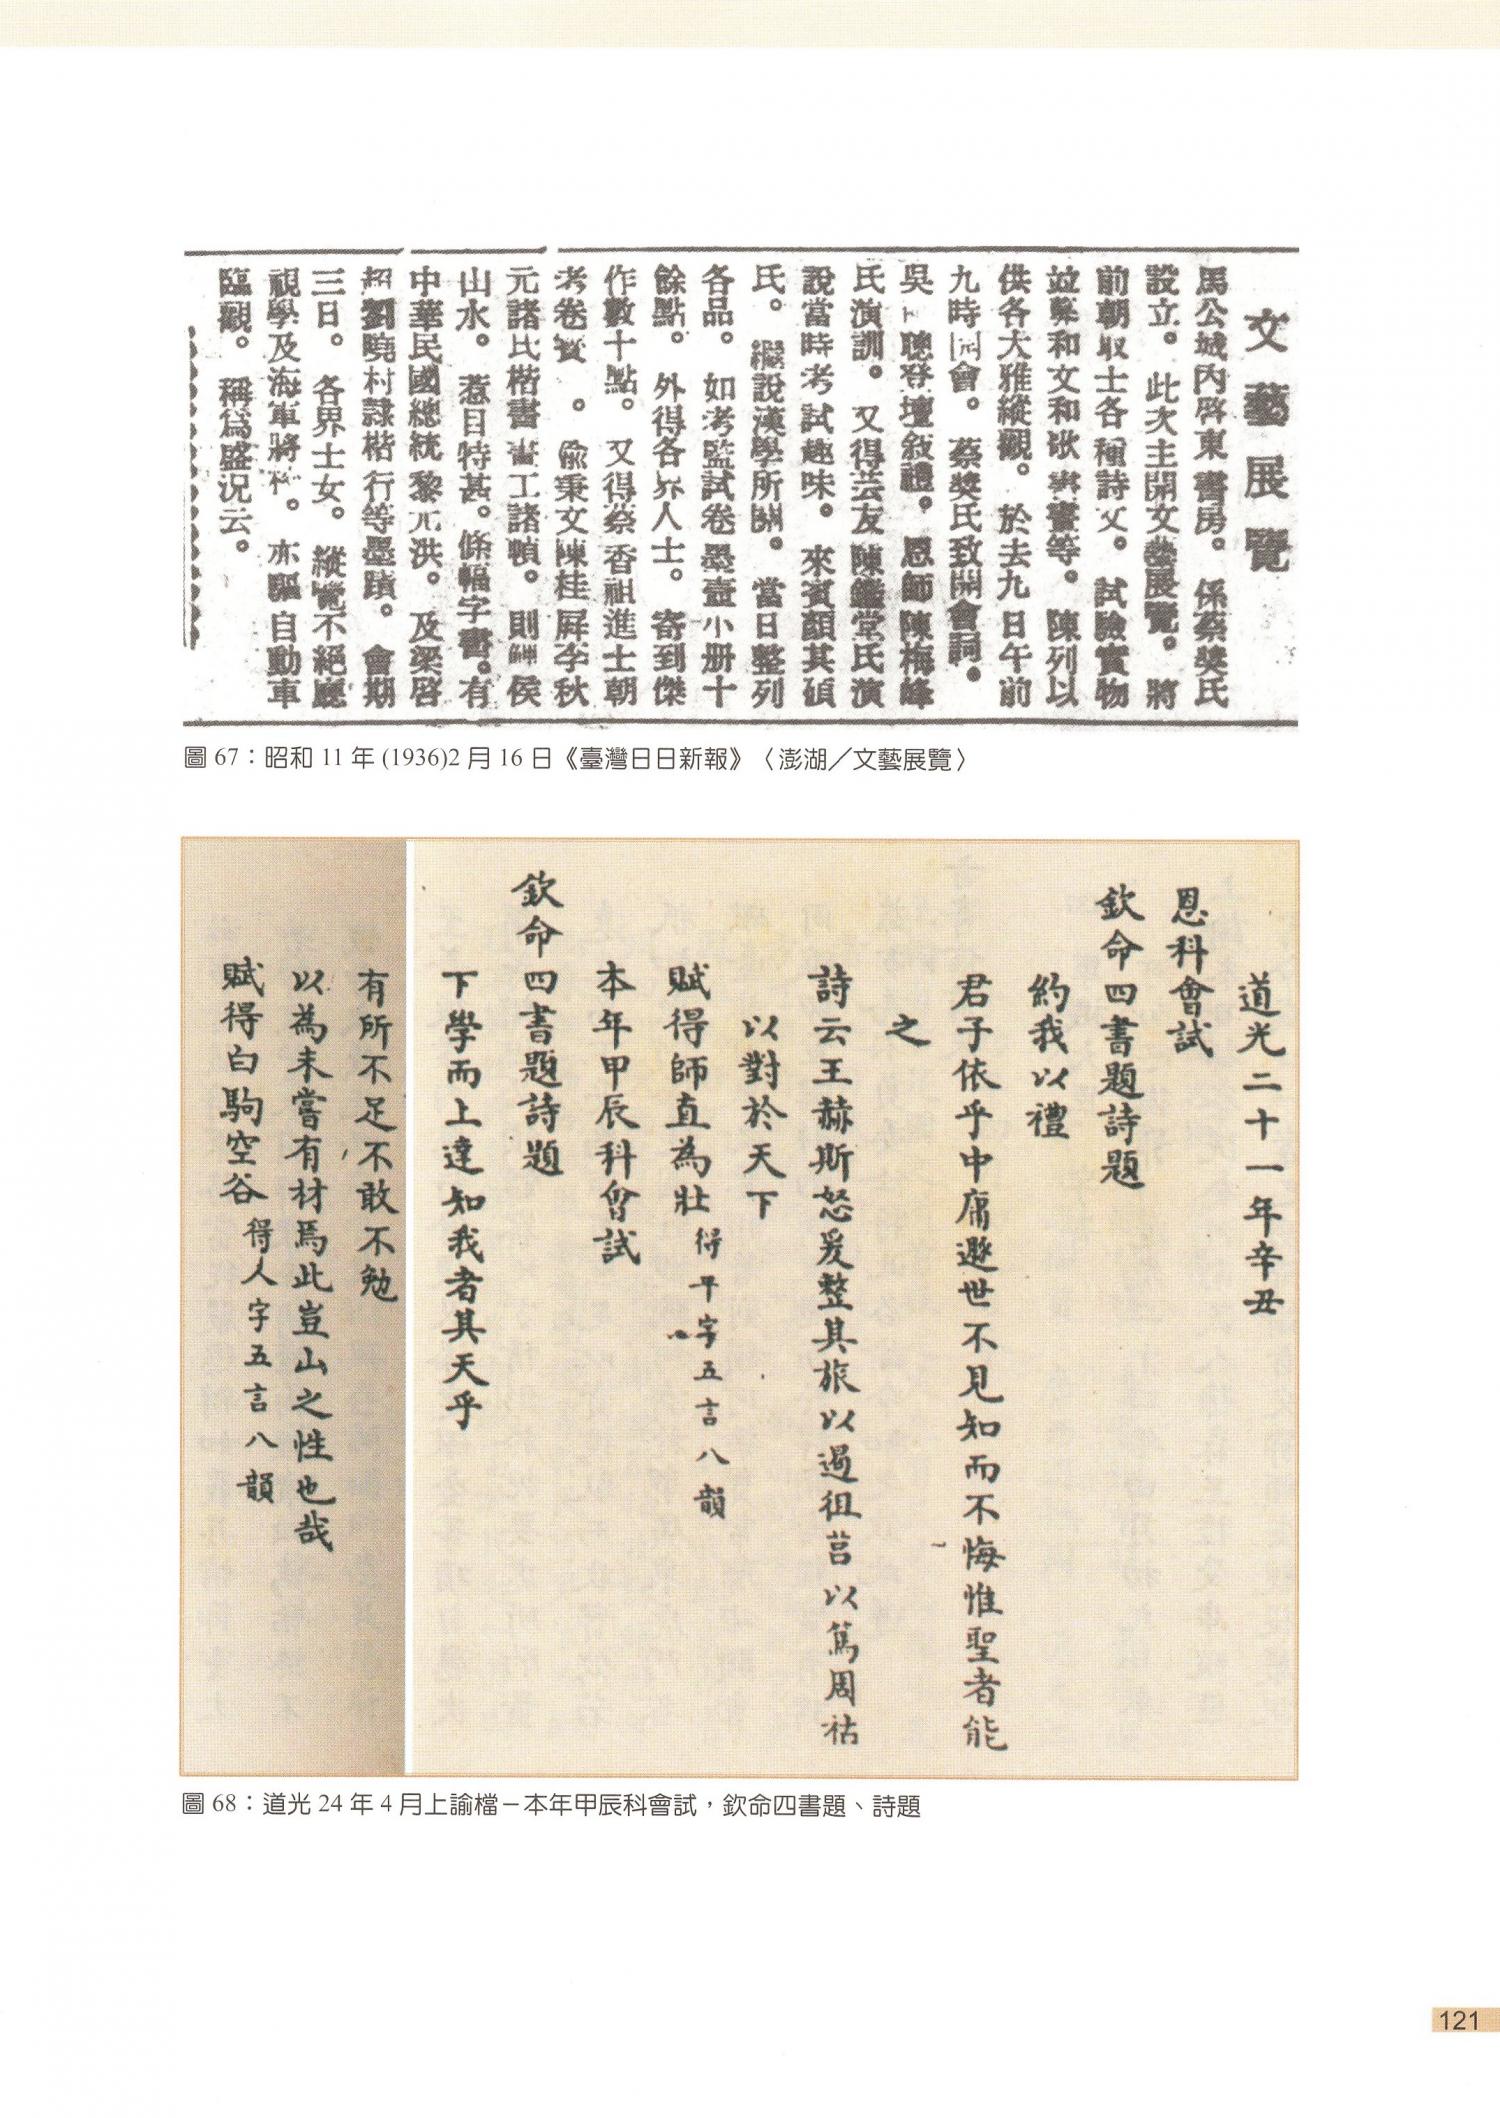 文藝展覽
馬公城內啓東書房。係蔡奬氏
設立。此次主開文藝展覽。將
前朝取士各種詩文。試驗實物
並和文和歌書等。陳列以
供各大雅縱觀。於去九日午前
九時開會。蔡奬氏致開會詞。
吳聰登壇敍禮。恩師陳梅峰
氏演訓。又得芸友陳鑑堂氏演
說當時考試趣味。來賓顏其碩
氏。繼說漢學所關。當日整列
各品。如考監試卷墨壺小册十
餘點。外得各界人士。寄到傑
作數十點。又得蔡香祖進士朝
考卷。兪秉文陳桂屛李秋
元諸氏楷書工諸幀。則侯
山水。惹目特甚。條幅字書。有
中華民國總統黎元洪。及梁啓
超劉曉村隸楷行等墨蹟。會期
三日。各界士女。縱覽不絕廳
視學及海軍將。亦驅自動車
臨觀。稱爲盛况云。
圖 67：昭和 11 年 (1936)2 月 16 日《臺灣日日新報》〈澎湖／文藝展覽〉
道光二十一年辛丑
恩科會試
欽命四書題詩題
約我以禮
君子依乎中庸遯世不見知而不悔惟聖者能
之
詩云王赫斯怒爰整其旅以遏徂莒以篤周祜
以對於天下
賦得師直為壯得平字五言八韻
本年甲辰科會試
欽命四書題詩題
下學而上達知我者其天乎
有所不足不敢不勉
以為未嘗有材焉此豈山之性也哉
賦得白駒空谷得人字五言八韻
圖 68：道光 24 年 4 月上諭檔－本年甲辰科會試，欽命四書題、詩題
121